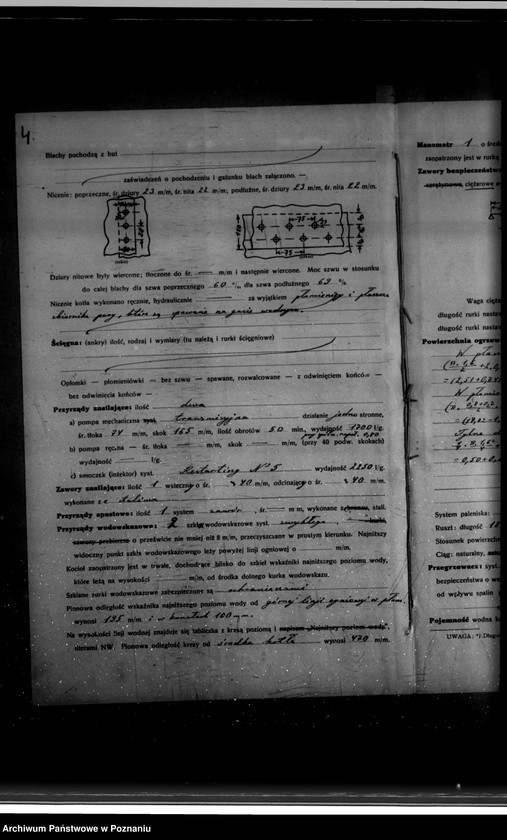 4.
Blachy pochodzą z hut
zaświadczeń o pochodzeniu i gatunku blach załączono. —
Nicenie: poprzeczne, śr. dziury 23 m/m, śr. nita 22 m/m; podłużne, śr. dziury 23 m/m, śr. nita 22 m/m.
75
75
Dziury nitowe były wiercone; tłoczone do śr. — m/m i następnie wiercone. Moc szwu w stosunku
do całej blachy dla szwu poprzecznego 60 %, dla szwu podłużnego 69 %.
Nicenie kotła wykonano ręcznie, hydraulicznie — za wyjątkiem płomienicy i płaszcza
zbiornika pary, które są spawane na gazie wodnym.
Ściągna: (ankry) ilość, rodzaj i wymiary (tu należą i rurki ściągniowe)
Opłomki — płomieniówki — bez szwu — spawane, rozwalcowane — z odwinięciem końców —
bez odwinięcia końców —
Przyrządy zasilające: ilość dwa
a) pompa mechaniczna syst. transmisyjna działanie jedno stronne,
śr. tłoka 74 m/m, skok 165 m/m, ilość obrotów 50 min., wydajność 1700 l/g.
b) pompa ręczna — śr. tłoka — m/m, skok — m/m, (przy 40 podw. skokach)
wydajność — l/g.
c) smoczek (inżektor) syst. Restarting № 5 wydajność 2250 l/g.
Zawory zasilające: ilość 1 wsteczny o śr. 40 m/m, odcinający o śr. 40 m/m.
wykonane ze staliwa
Przyrządy spustowe: ilość 1 system zawór, śr. — m/m, wykonane z stali.
Przyrządy wodowskazowe: 2 szkła wodowskazowe syst. zwykłego,
zawory probiercze o prześwicie nie mniej niż 8 m/m, przeczyszczane w prostym kierunku. Najniższy
widoczny punkt szkła wodowskazowego leży powyżej linji ogniowej o — m/m.
Kocioł zaopatrzony jest w trwałe, dochodzące blisko do szkieł wskaźniki najniższego poziomu wody,
które leżą na wysokości — m/m, od środka dolnego kurka wodowskazu.
Szklane rurki wodowskazowe zabezpieczone są ochraniaczami
Pionowa odległość wskaźnika najniższego poziomu wody od górnej linji ogniowej w płom.
wynosi 195 m/m. i w kanałach 100 mm.
Na wysokości linji wodnej znajduje się tabliczka z kresą poziomą i napisem „Najniższy poziom wody".
literami NW. Pionowa odległość kresy od środka kotła — wynosi 420 m/m.
Manometr 1 o śred
zaopatrzony jest w rurkę
Zawory bezpieczeństwa
sprężynowe, ciężarowe
Waga cięża
długość rurki nastaw
długość rurki nastaw
Powierzchnia ogrzew
System paleniska:
Ruszt: długość
Stosunek powierzchn
Ciąg: naturalny,
Przegrzewacz: syst.
bezpieczeństwa o we
od wpływu spalin
Pojemność wodna k
UWAGA: *) Długo
Archiwum Państwowe w Poznaniu